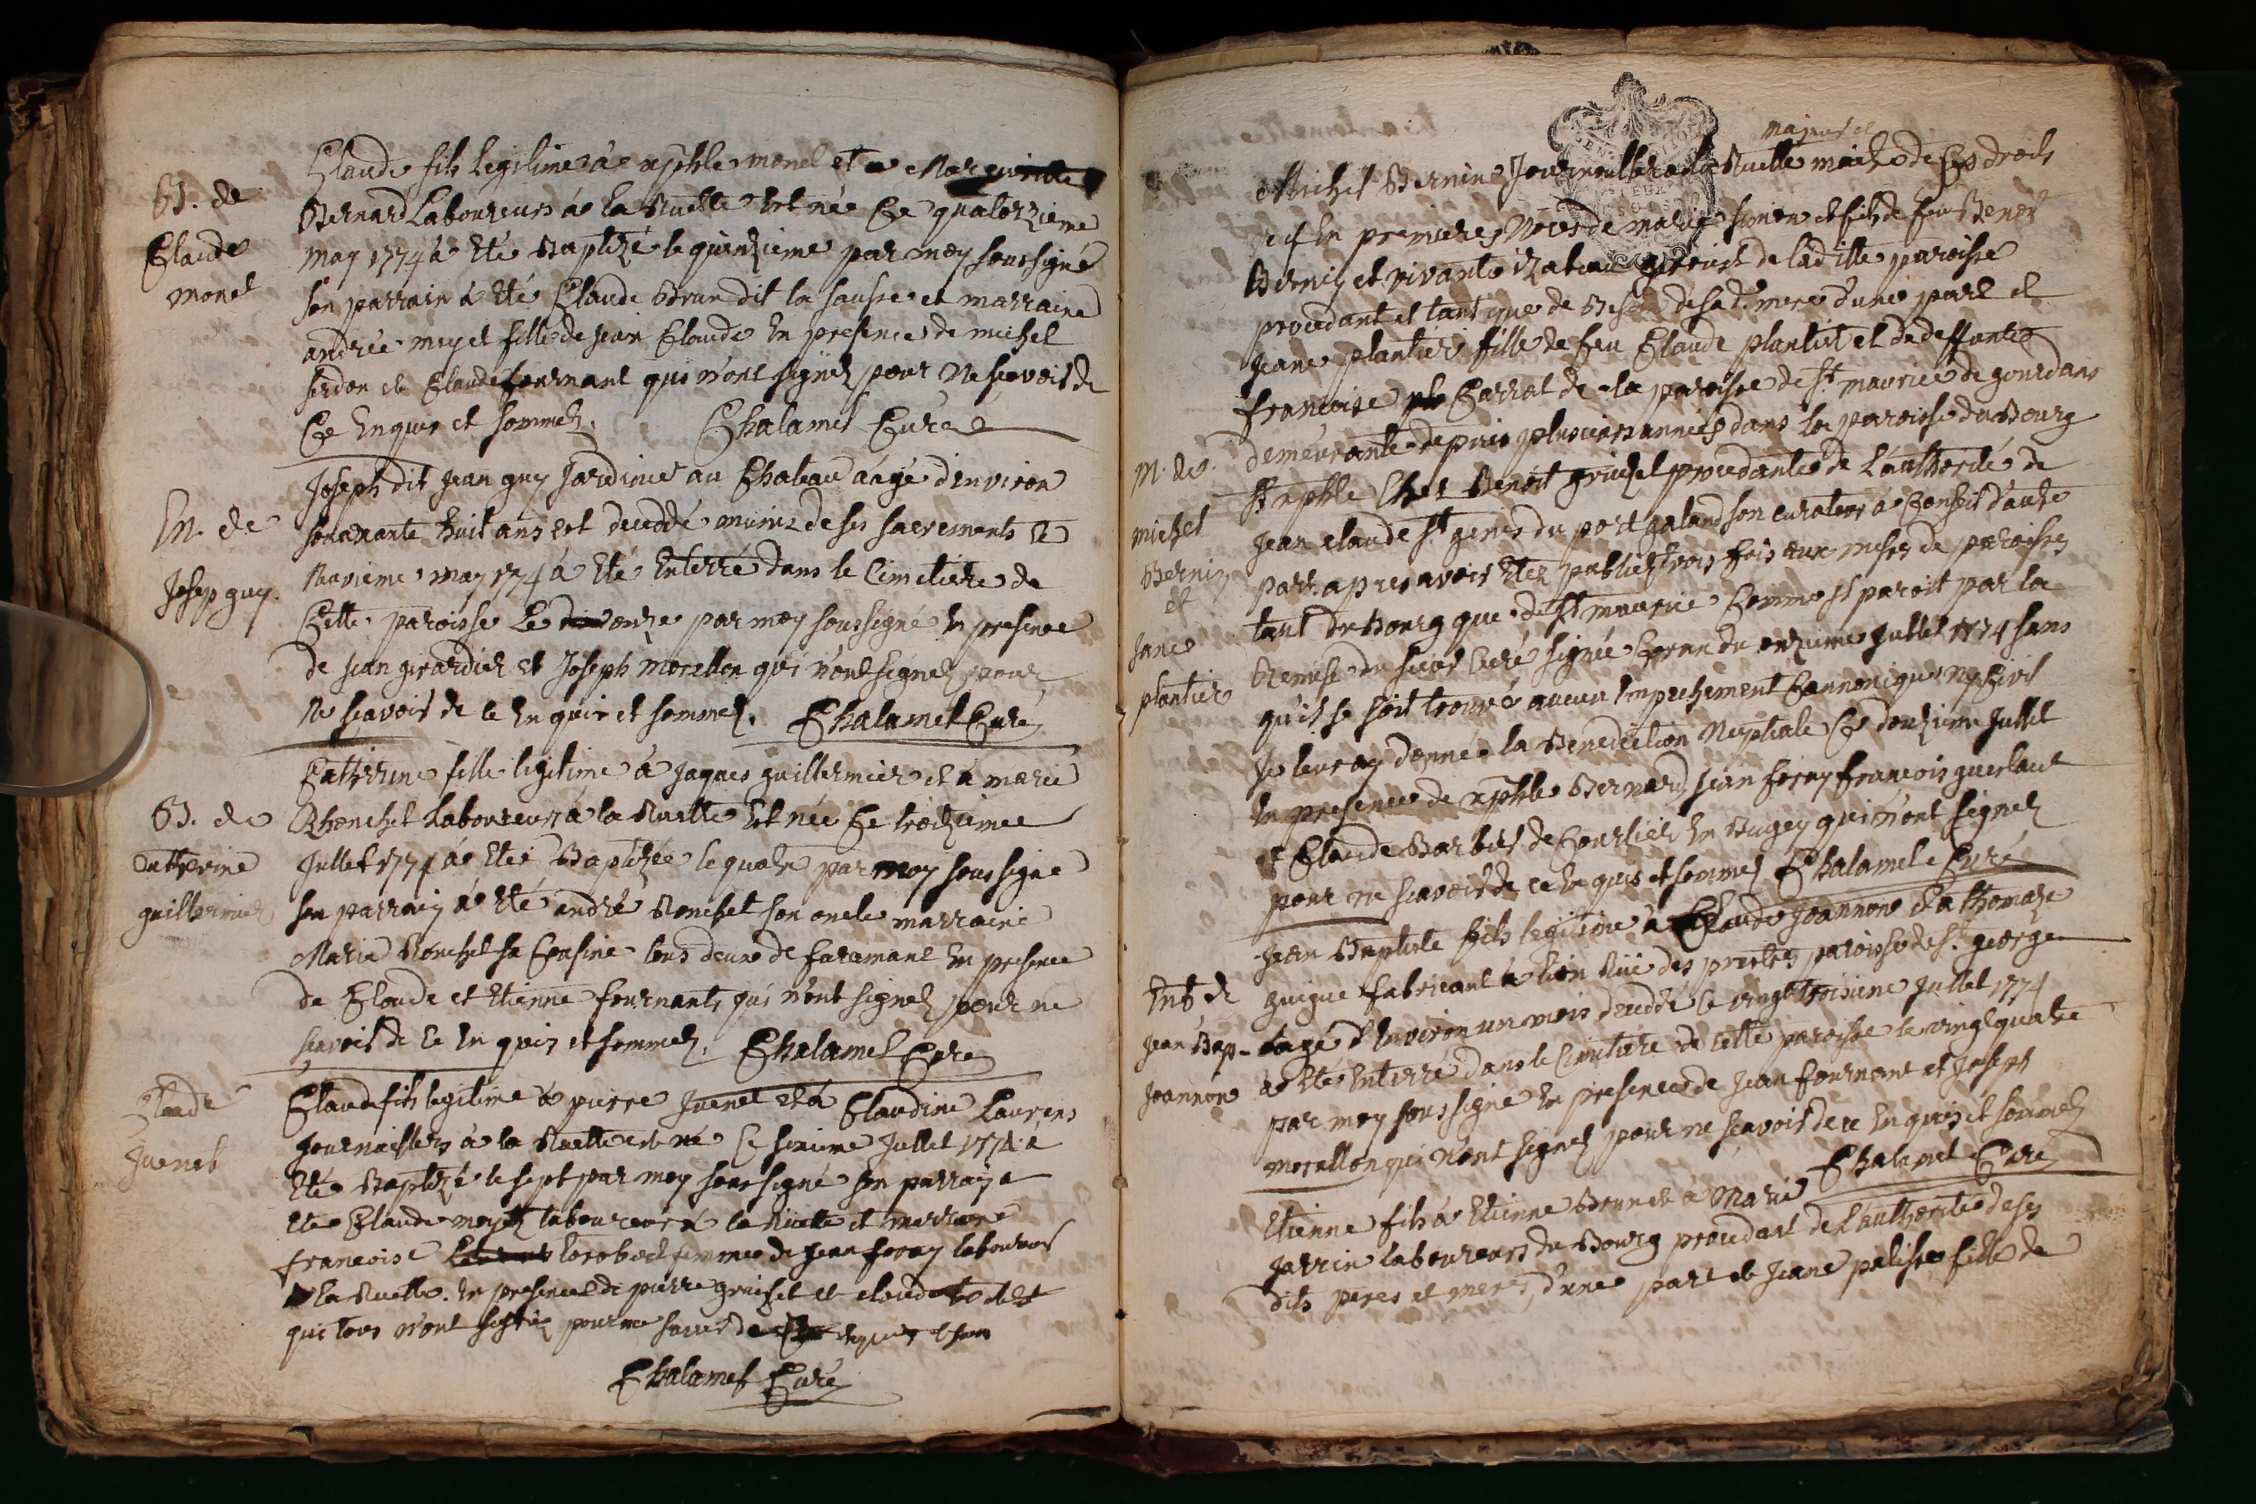 B. de
Claude
monet
Claude fils legitime à xphle monet et a
Bernard Laboureurs à la Ruelle Est né Ce quatorzieme
may 1774 à Eté Baptizé le quinzieme par moy soussigné
son parrain à Eté Claude Brun dit la sausse et marraine
andrée moyet fille de jean Claude En presence de michel
serdon et Claude fournant qui n'ont signéz pour Ne scavoir de
Ce Enquis et sommez. Chalamel Curé
En. de
Josep guy.
Joseph dit jean guy jardinier au Chateau àagé d'Environ
soixante huit ans est deceddé muni de ses sacrements le
Neuvieme may 1774 à Eté Enterré dans le Cimetiere de
Cette paroisse Le onze par moy soussigné En presence
de jean girardier et Joseph morellon qui n'ont signez pour
Ne scavoir de ce Enquis et sommez. Chalamel Curé
B. de
Catherine
guillermier
Catherine fille legitime à jaques guillermier et à marie
Ronchet Laboureurs à la Ruelle Est née Ce troizieme
Jullet 1774 à Eté Baptizée le quatre par moy soussigné
son parrain à Eté andré Ronchet son oncle marraine
Marie Ronchet sa Cousine tous deux de faramans En presence
de Claude et Etienne fournants qui n'ont signez pour ne
scavoir de ce Enquis et sommez. Chalamel Curé
Claude
Juenet
Claude fils legitime à pierre Juenet et à Claudine Laurens
Journailliers à la Ruelle est né Ce sixieme Jullet 1774 à
Eté Baptizé le sept par moy soussigné son parrain a
Eté Claude moyet laboureur à la Ruelle et marraine
francoise femme de jean foray laboureur
à la Ruelle. En presence de pierre grischet et claude
qui tous n'ont signéz pour ne scavoir de Enquis et som
Chalamel Curé
majeur et
Michel Bernin Journaillier à la Ruelle maitre de Ces droits
Veuf En premieres Noces de marie simon et fils de feu Benoit
Bernin et vivante izabeau de ladite paroisse
procedant et tant que de Besoin de sa d. mere d'une part et
M. de
michel
Bernin
et
Jane
plantier
jeane plantier fille de feu Claude plantier et de deffunte
francoise Carrat de la paroisse de St maurice de gourdans
demeurante depuis plusieurs années dans la paroisse du Bourg
St xphle Chez Benoit grischet procedante de L'authorité de
jean claude St genis du port galand son curateur à Conseil d'autre
part. apres avoir Etez publiez trois fois aux messes de paroisses
tant du Bourg que de St maurice Comme il paroit par la
Remise du sieur Curé signé du onzieme Jullet 1774 sans
qu'il se soit trouvé aucun Empechement Cannonique Ny Civil
Je leur ay donné la Benediction Nuptiale Ce douzieme Jullet
En presence de xphle Bernard, jean foray francois guerlaut
et Claude Barbier de Courlier En Bugey qui n'ont signez
pour ne scavoir de ce Enquis et sommez Chalamel Curé
Ent. de
jean Bap-
Joannon
Jean Baptiste fils legitime à Claude Joannon et à thomaze
guigue fabricant à lion Rüe des pretres paroisse de St. george
àagé d'Environ un mois deceddé le vingt troisieme Jullet 1774
à Eté Enterré dans le Cimetiere de cette paroisse le vingt quatre
par moy soussigné En presence de jean fournant et Joseph
morellon qui n'ont signez pour ne scavoir de ce Enquis et sommez
Chalamel Curé
Etienne fils à Etienne Brun et à Marie
Jarrin laboureurs du Bourg procedant de L'authorité de ses
dits peres et mere, d'une part et Jeane palisse fille de